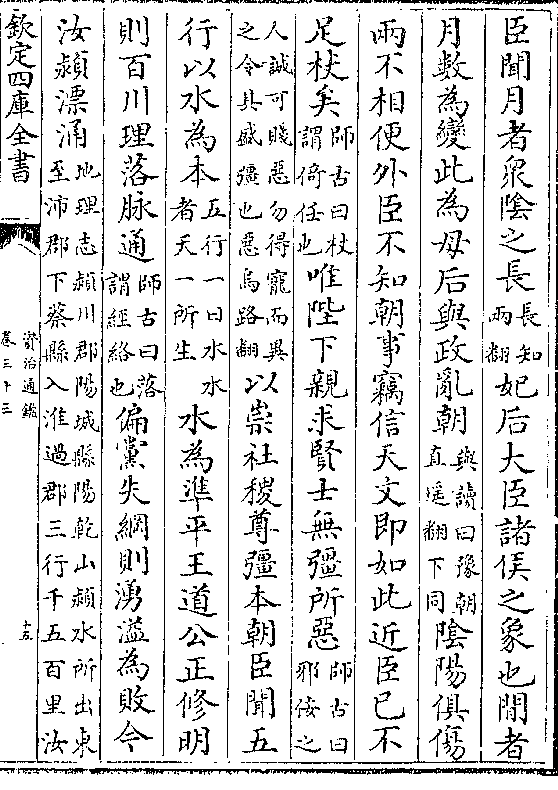 臣聞月者衆陰之長長知兩翻妃后大臣諸侯之象也間者
月數為變此為母后與政亂朝與讀曰豫朝直遥翻下同陰陽俱傷
兩不相便外臣不知朝事竊信天文即如此近臣已不
足杖矣師古曰杖謂倚任也唯陛下親求賢士無彊所惡師古曰邪佞之
人誠可賤惡勿得寵而異之令其盛彊也惡烏路翻以崇社稷尊彊本朝臣聞五
行以水為本五行一曰水水者天一所生水為準平王道公正修明
則百川理落脉通師古曰落謂經絡也偏黨失綱則湧溢為敗今
汝潁漂涌地理志潁川郡陽城縣陽乾山潁水所出東至沛郡下蔡縣入淮過郡三行千五百里汝
欽定四庫全書
資治通鑑
卷三十三
十五